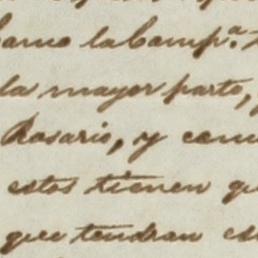 como la Comp.ª
la mayor parte,
Rosario, y com
estos tienen qu
que tendran es